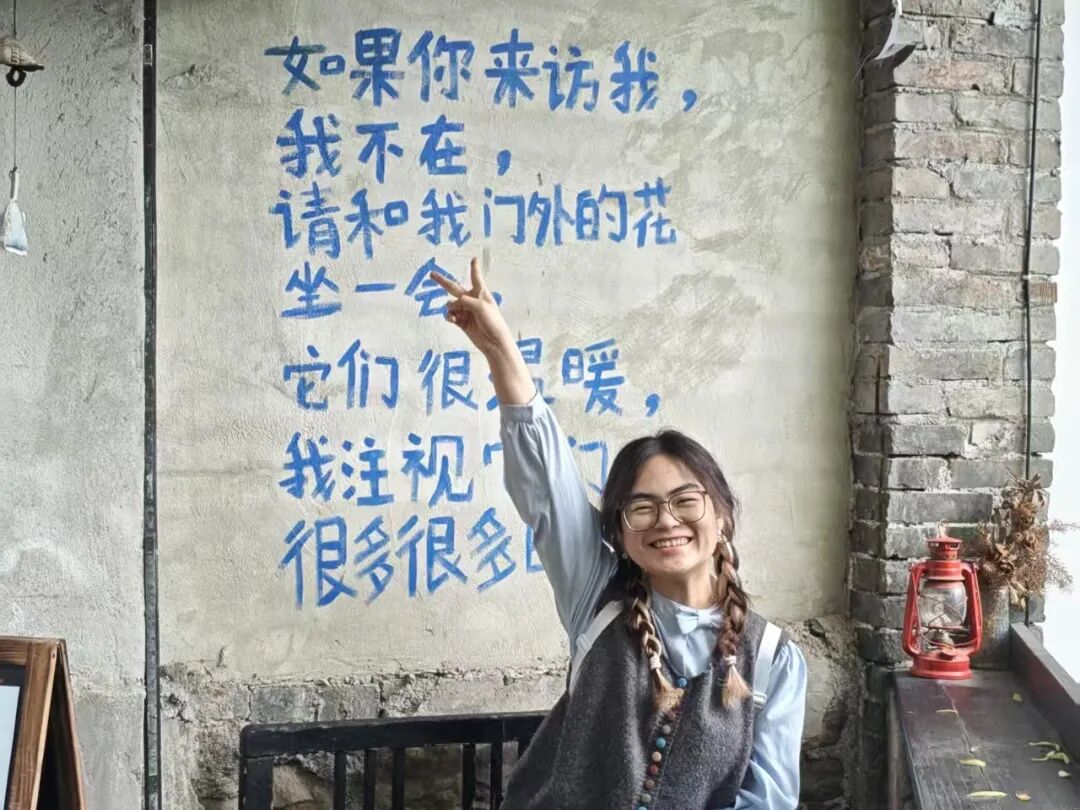 如果你来访我，
我不在，
请和我门外的花
坐一会，
它们很温暖，
我注视它们
很多很多日